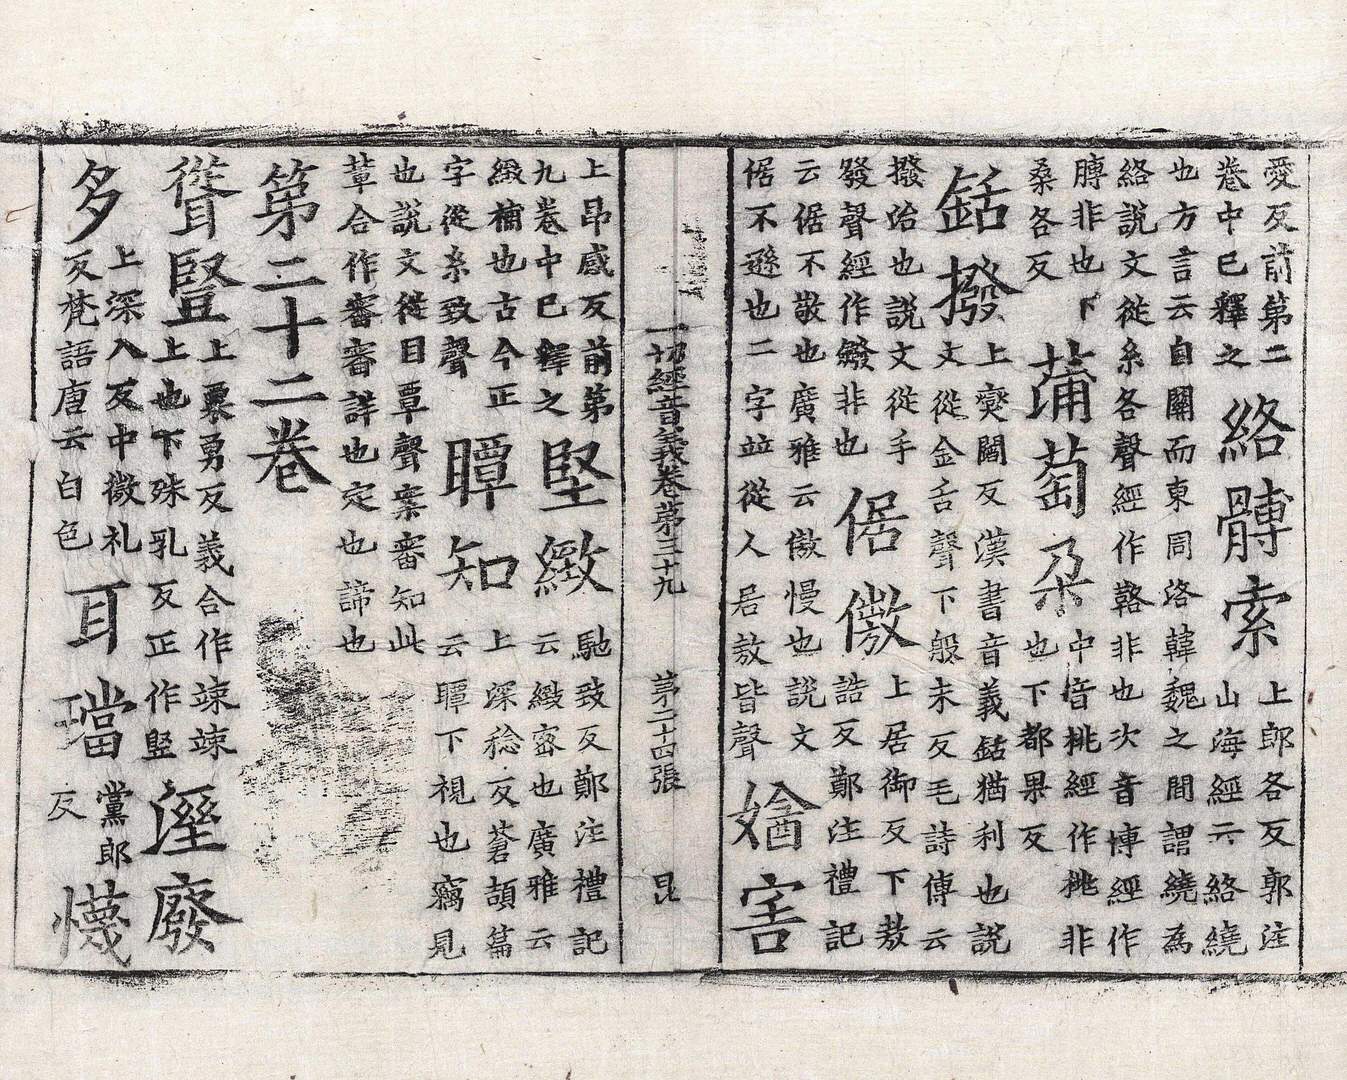 愛反前第二
卷中已釋之
絡髆索
上郎各反郭注
山海經云絡繞
也方言云自關而東周洛韓魏之間謂繞為
絡說文從糸各聲經作䩭非也次音博經作
膊非也下
桑各反
蒲萄朶
中音挑經作桃非
也下都果反
銛撥
上燮閻反漢書音義銛猶利也說
文從金舌聲下般末反毛詩傳云
撥治也說文從手
發聲經作鱍非也
倨傲
上居御反下敖
誥反鄭注禮記
云倨不敬也廣雅云傲慢也說文
倨不遜也二字竝從人居敖皆聲
害
一切經音義卷第三十九 第二十四張 昆
上昂感反前第
九卷中已釋之
堅緻
馳致反鄭注禮記
云緻密也廣雅云
緻補也古今正
字從糸致聲
瞫知
上深稔反蒼頡篇
云瞫下視也竊見
也說文從目覃聲案審知此
蕈合作審審詳也定也諦也
第二十二卷
聳豎
上粟勇反義合作竦竦
上也下殊乳反正作竪
溼廢
多
上深入反中微礼
反梵語唐云白色
耳璫
黨郎
反
懱